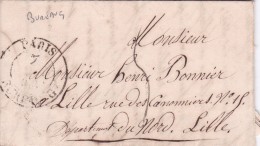 Monsieur
PARIS
7
Monsieur Henri Bonnier
à Lille rue des Canonniers N° 15.
Département du Nord. Lille.